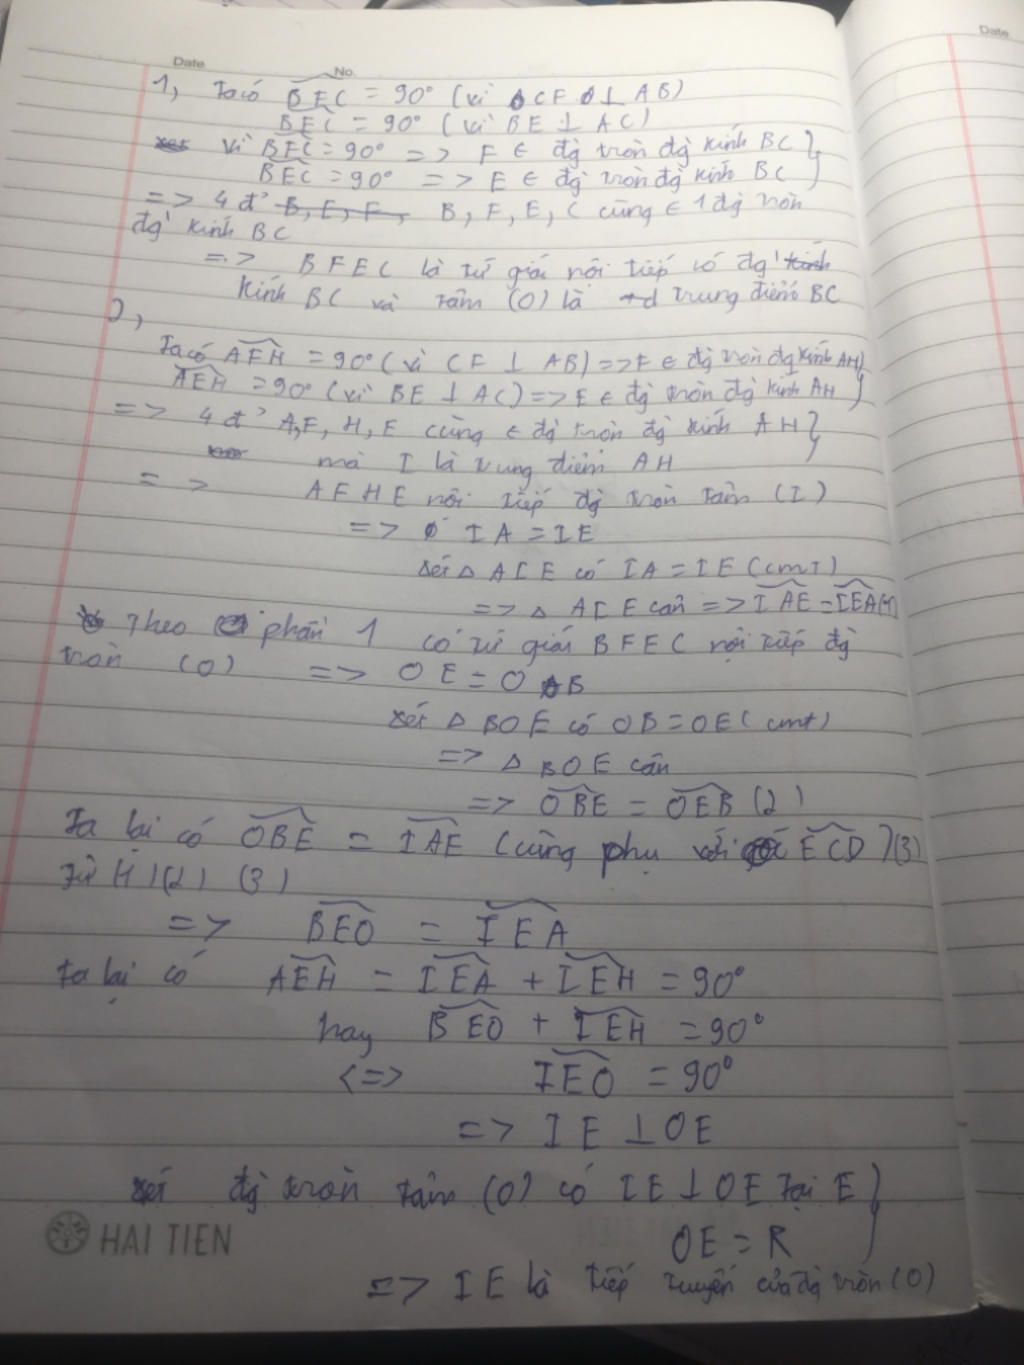 Date
No.
Date
1, Ta có BFC = 90° (vì CF ⊥ AB)
BEC = 90° (vì BE ⊥ AC)
Vì BFC = 90° => F ∈ đg tròn đg kính BC }
BEC = 90° => E ∈ đg tròn đg kính BC
=> 4 đ' B, F, E, C cùng ∈ 1 đg tròn
đg kính BC
=> BFEC là tứ giác nội tiếp có đg
kính BC và tâm (O) là trung điểm BC
2,
Ta có AFH = 90° (vì CF ⊥ AB) => F ∈ đg tròn đg kính AH }
AEH = 90° (vì BE ⊥ AC) => E ∈ đg tròn đg kính AH
=> 4 đ' A, F, H, E cùng ∈ đg tròn đg kính AH }
mà I là trung điểm AH
=> AFHE nội tiếp đg tròn tâm (I)
=> IA = IE
Xét △ AIE có IA = IE (cmt)
=> △ AIE cân => IAE = IEA (1)
Theo phần 1 có tứ giác BFEC nội tiếp đg
tròn (O) => OE = OB
Xét △ BOE có OB = OE (cmt)
=> △ BOE cân
=> OBE = OEB (2)
Ta lại có OBE = IAE (cùng phụ với ECD) (3)
Từ (1) (2) (3)
=> BEO = IEA
Ta lại có AEH = IEA + IEH = 90°
hay BEO + IEH = 90°
<=> IEO = 90°
=> IE ⊥ OE
Xét đg tròn tâm (O) có IE ⊥ OE tại E }
OE = R
=> IE là tiếp tuyến của đg tròn (O)
HAI TIEN